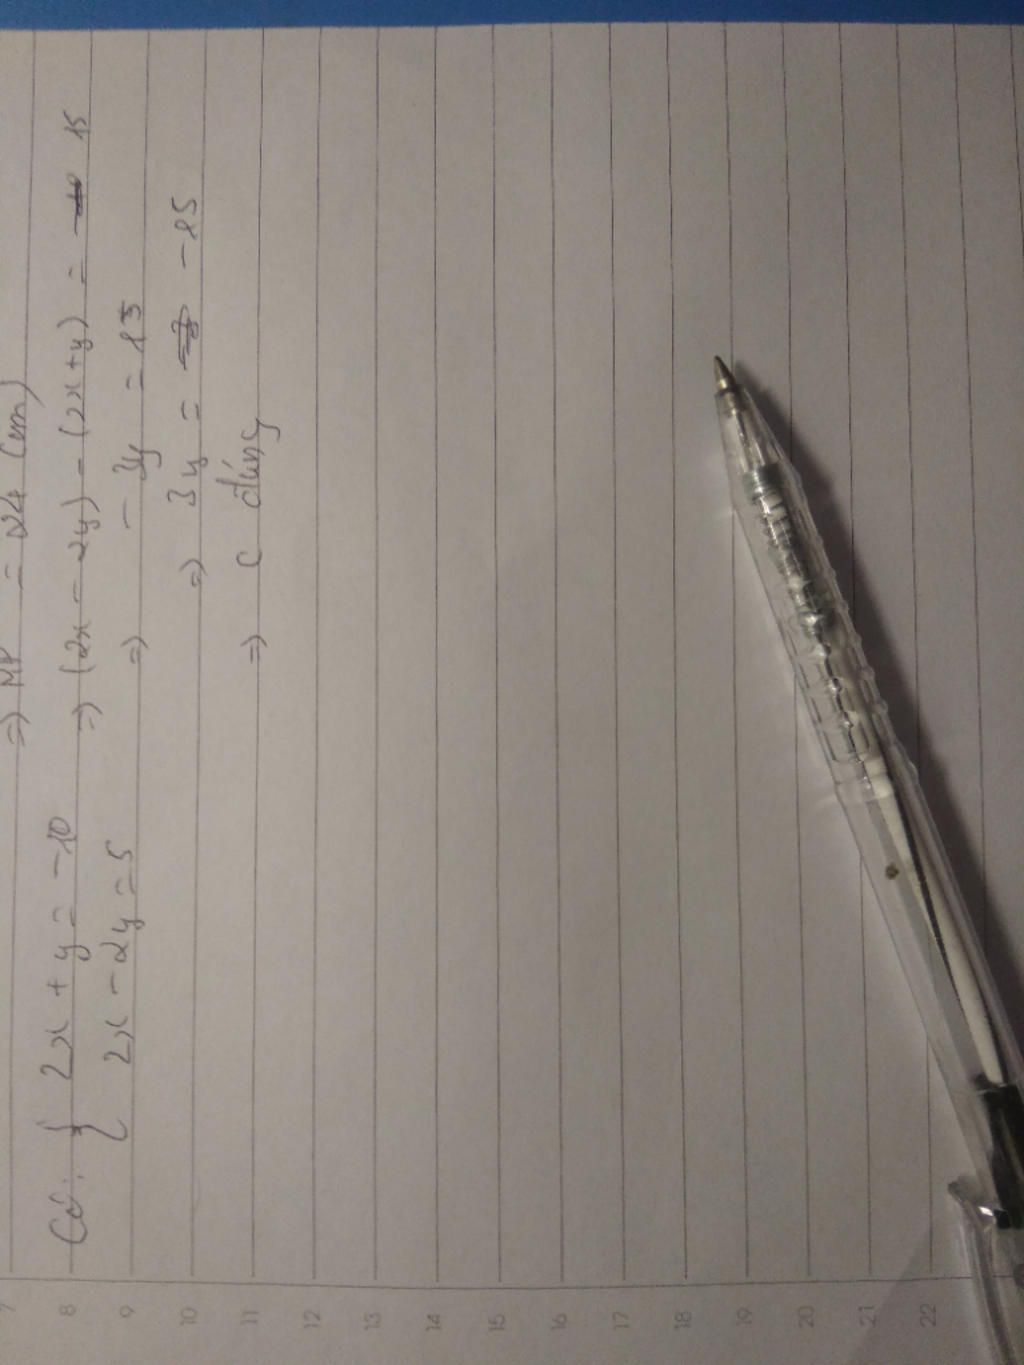 =) MP = 24 (cm)
Có: { 2x + y = -10 =) (2x - 2y) - (2x+y) = 15
2x - 2y = 5 =) - 3y = 15
=) 3y = -15
=) C đúng
7
8
9
10
11
12
13
14
15
16
17
18
19
20
21
22